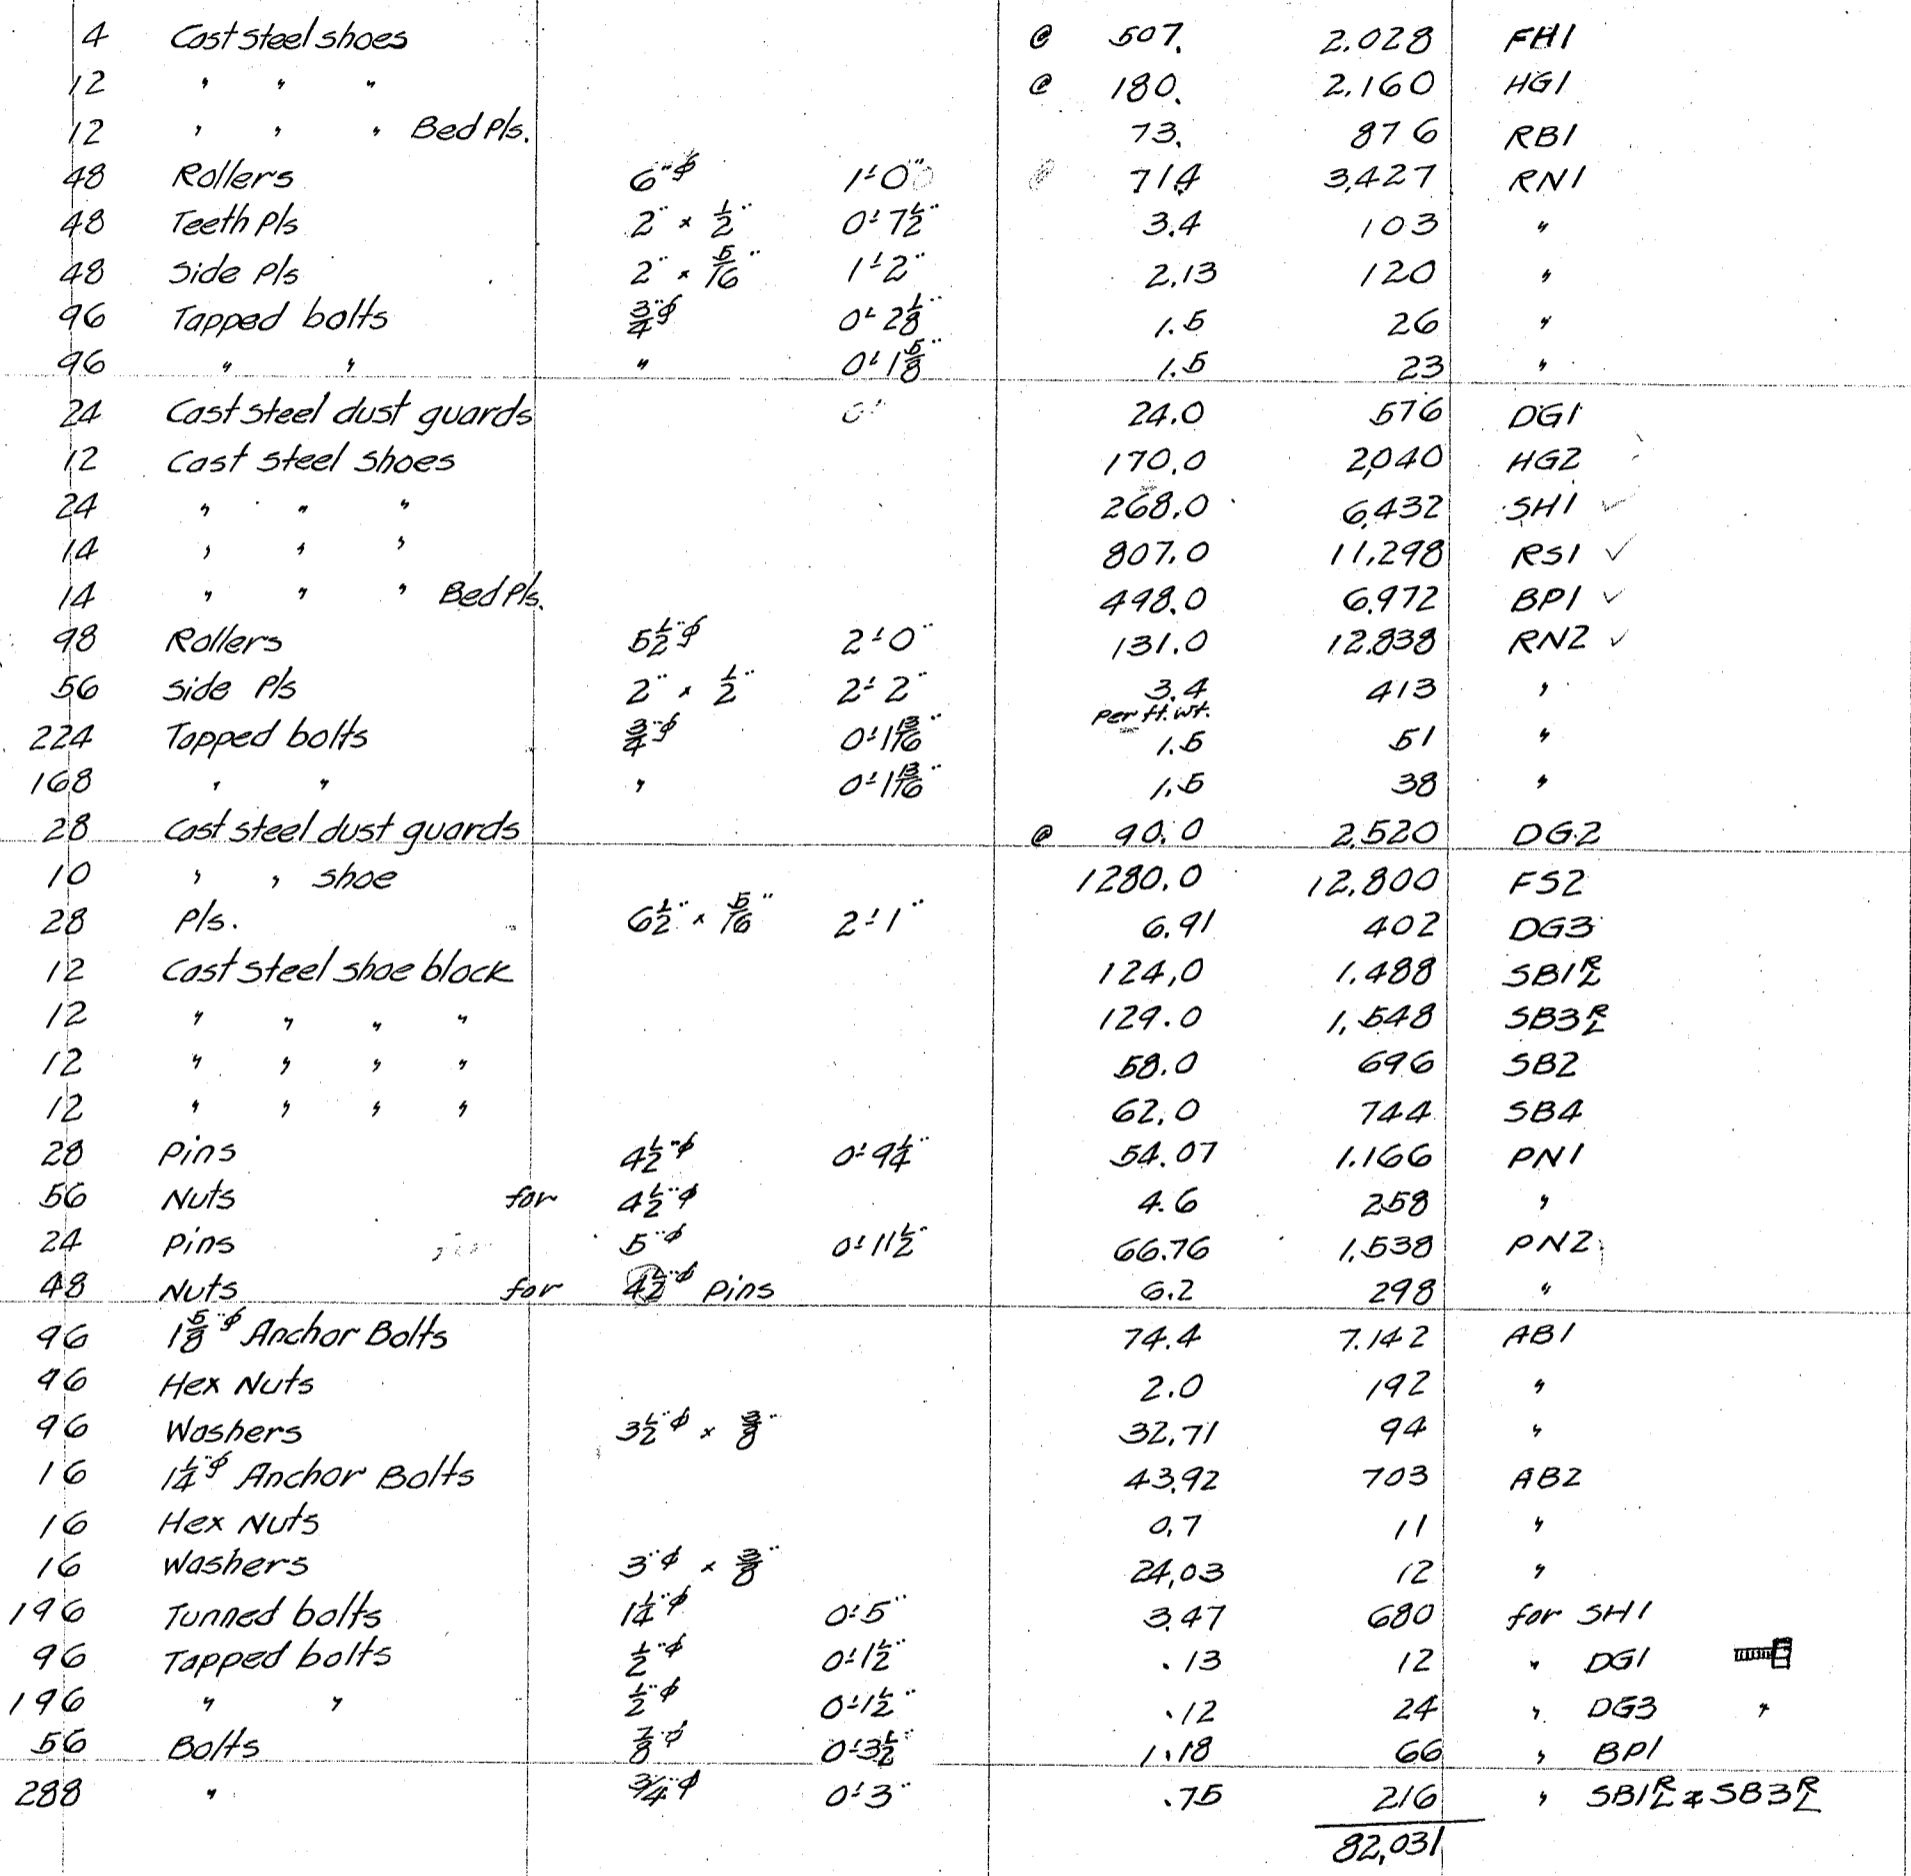 4 Cast steel shoes @ 507. 2,028 FH1
12 " " " @ 180. 2,160 HG1
12 " " " Bed Pls. 73. 876 RB1
48 Rollers 6"ϕ 1'-0" 714 3,427 RN1
48 Teeth Pls 2" x 1/2" 0'-7 1/2" 3.4 103 "
48 Side Pls 2" x 5/16" 1'-2" 2.13 120 "
96 Tapped bolts 3/4"ϕ 0'-2 1/8" 1.5 26 "
96 " " " 0'-1 5/8" 1.5 23 "
24 Cast steel dust guards 24.0 576 DG1
12 Cast steel shoes 170.0 2,040 HG2
24 " " " 268.0 6,432 SH1 ✓
14 " " " 807.0 11,298 RS1 ✓
14 " " " Bed Pls. 498.0 6,972 BP1 ✓
98 Rollers 5 1/2"ϕ 2'-0" 131.0 12,838 RN2 ✓
56 Side Pls 2" x 1/2" 2'-2" 3.4 413 "
per ft. wt.
224 Tapped bolts 3/4"ϕ 0'-1 13/16" 1.5 51 "
168 " " " 0'-1 13/16" 1.5 38 "
28 Cast steel dust guards @ 90.0 2,520 DG2
10 " " shoe 1280.0 12,800 FS2
28 Pls. 6 1/2" x 5/16" 2'-1" 6.91 402 DG3
12 Cast steel shoe block 124.0 1,488 SB1 R/L
12 " " " " 129.0 1,548 SB3 R/L
12 " " " " 58.0 696 SB2
12 " " " " 62.0 744 SB4
28 Pins 4 1/2"ϕ 0'-9 1/4" 54.07 1,166 PN1
56 Nuts for 4 1/2"ϕ 4.6 258 "
24 Pins 5"ϕ 0'-11 1/2" 66.76 1,538 PN2
48 Nuts for 4 1/2"ϕ Pins 6.2 298 "
96 1 5/8"ϕ Anchor Bolts 74.4 7,142 AB1
96 Hex Nuts 2.0 192 "
96 Washers 3 1/2"ϕ x 3/8" 32.71 94 "
16 1 1/4"ϕ Anchor Bolts 43.92 703 AB2
16 Hex Nuts 0.7 11 "
16 Washers 3"ϕ x 3/8" 24.03 12 "
196 Tunned bolts 1 1/4"ϕ 0'-5" 3.47 680 for SH1
96 Tapped bolts 1/2"ϕ 0'-1 1/2" .13 12 " DG1
196 " " 1/2"ϕ 0'-1 1/2" .12 24 " DG3 "
56 Bolts 7/8"ϕ 0'-3 1/2" 1.18 66 " BP1
288 " 3/4"ϕ 0'-3" .75 216 " SB1 R/L & SB3 R/L
82,031